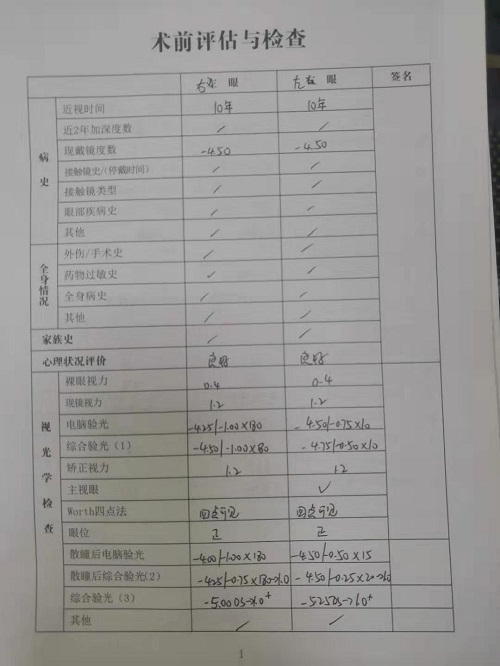 术前评估与检查
右 眼 左 眼 签名
病史
近视时间 10年 10年
近2年加深度数 / /
现戴镜度数 -4.50 -4.50
接触镜史/(停戴时间) / /
接触镜类型 / /
眼部疾病史 / /
其他 / /
全身情况
外伤/手术史 / /
药物过敏史 / /
全身病史 / /
其他 / /
家族史 / /
心理状况评价 良好 良好
视光学检查
裸眼视力 0.4 0.4
现镜视力 1.2 1.2
电脑验光 -4.25/-1.00×180 -4.50/-0.75×10
综合验光（1） -4.50/-1.00×80 -4.75/-0.50×10
矫正视力 1.2 1.2
主视眼 ✓
Worth四点法 四点可见 四点可见
眼位 正 正
散瞳后电脑验光 -4.00/-1.00×180 -4.50/-0.50×15
散瞳后综合验光(2) -4.25/-0.75×180→1.0 -4.50/-0.25×20→1.0
综合验光（3） -5.00DS→1.0⁺ -5.25DS→1.0⁺
其他 / /
1